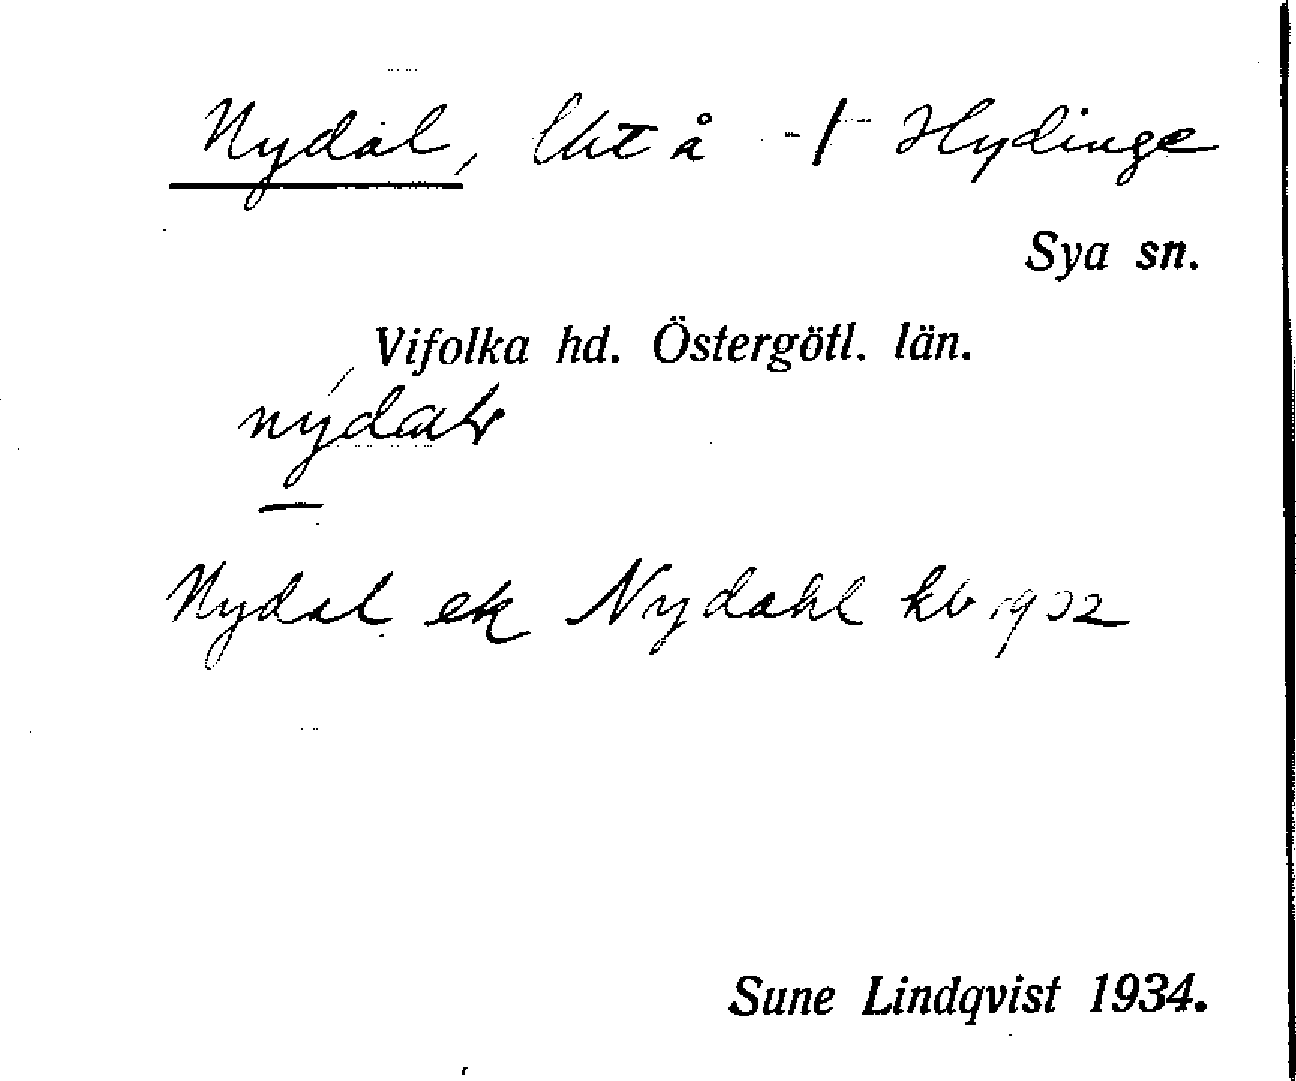 Nydal, lht å -/- Hydinge
Sya sn.
Vifolka hd. Östergötl. län.
Nydal ek Nydahl kb 1932
Sune Lindqvist 1934.